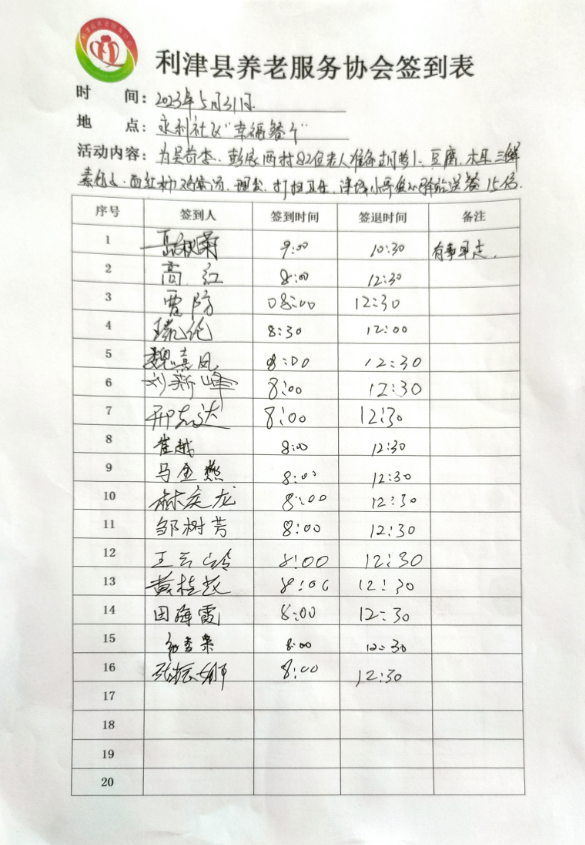 利津县养老服务协会签到表
时 间: 2023年5月31日
地 点: 永利社区"幸福餐厅"
活动内容: 两村82位老人准备胡萝卜、豆腐、木耳三鲜
素包子、西红柿鸡蛋汤、理发、打扫卫生、送餐15份.
序号 签到人 签到时间 签退时间 备注
1 9:00 10:30 有事早走.
2 高红 8:00 12:30
3 贾防 08:00 12:30
4 8:30 12:00
5 魏嘉凤 8:00 12:30
6 刘新峰 8:00 12:30
7 邢志达 8:00 12:30
8 崔越 8:00 12:30
9 马金燕 8:00 12:30
10 8:00 12:30
11 邹树芳 8:00 12:30
12 王云玲 8:00 12:30
13 黄桂花 8:00 12:30
14 田海霞 8:00 12:30
15 8:00 12:30
16 张振娜 8:00 12:30
17
18
19
20